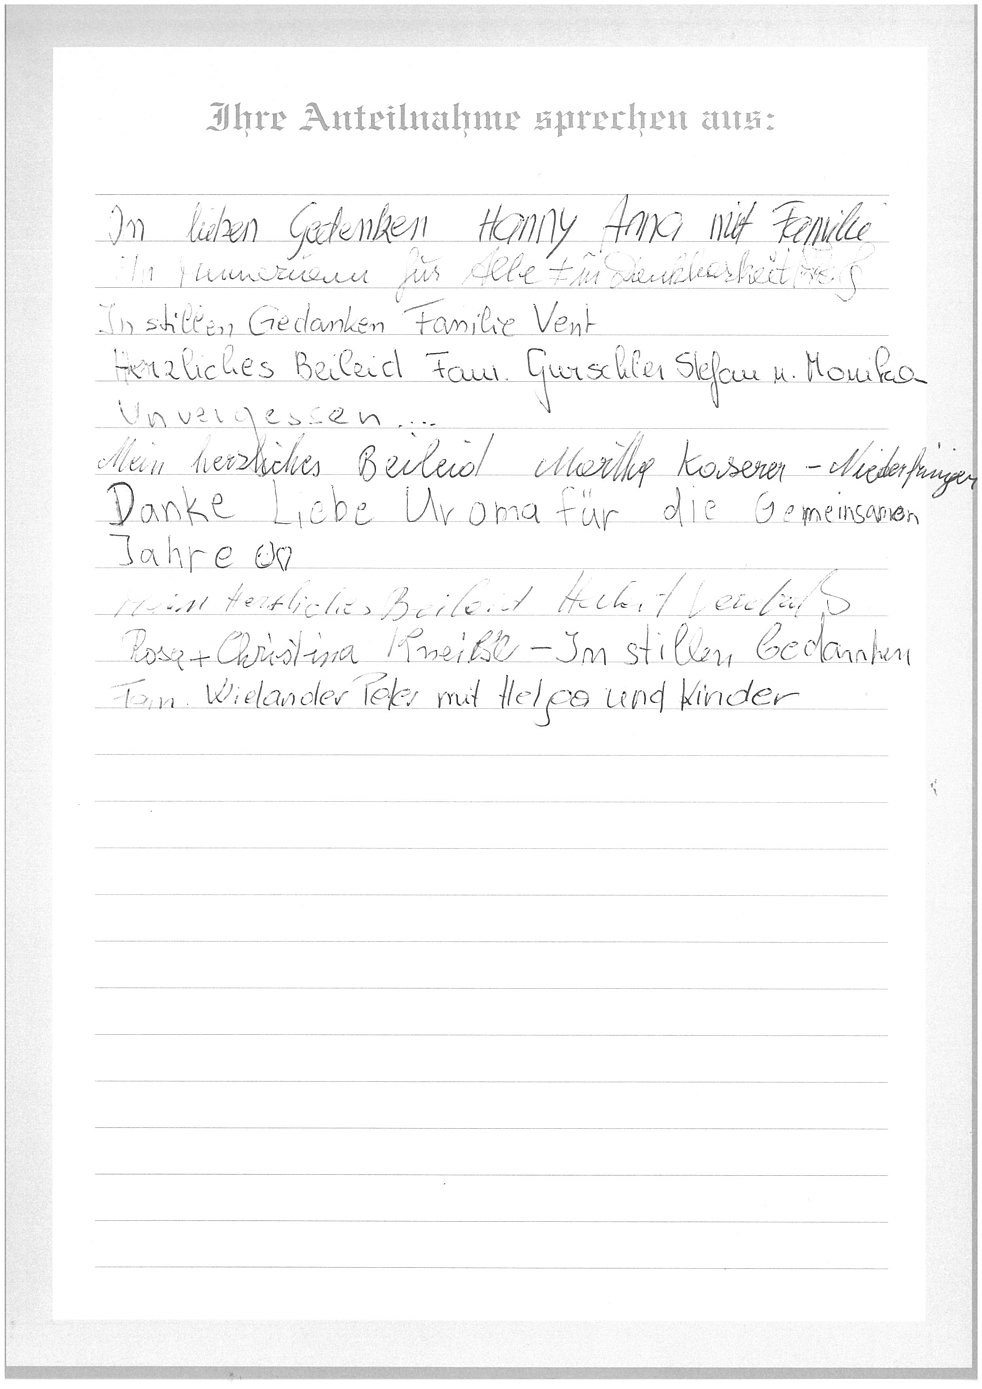 Ihre Anteilnahme sprechen aus:
In lieben Gedenken Hanny Anna mit Familie
für Alles in Dankbarkeit
In stillen Gedanken Familie Vent
Herzliches Beileid Fam. Gurschler Stefan u. Monika
Unvergessen....
Mein herzliches Beileid Martha Kaserer - Niederfriniger
Danke Liebe Uroma für die Gemeinsamen
Jahre
Mein Herzliches Beileid
Rosa + Christina - In stillen Gedanken
Fam. Wielander Peter mit Helga und Kinder